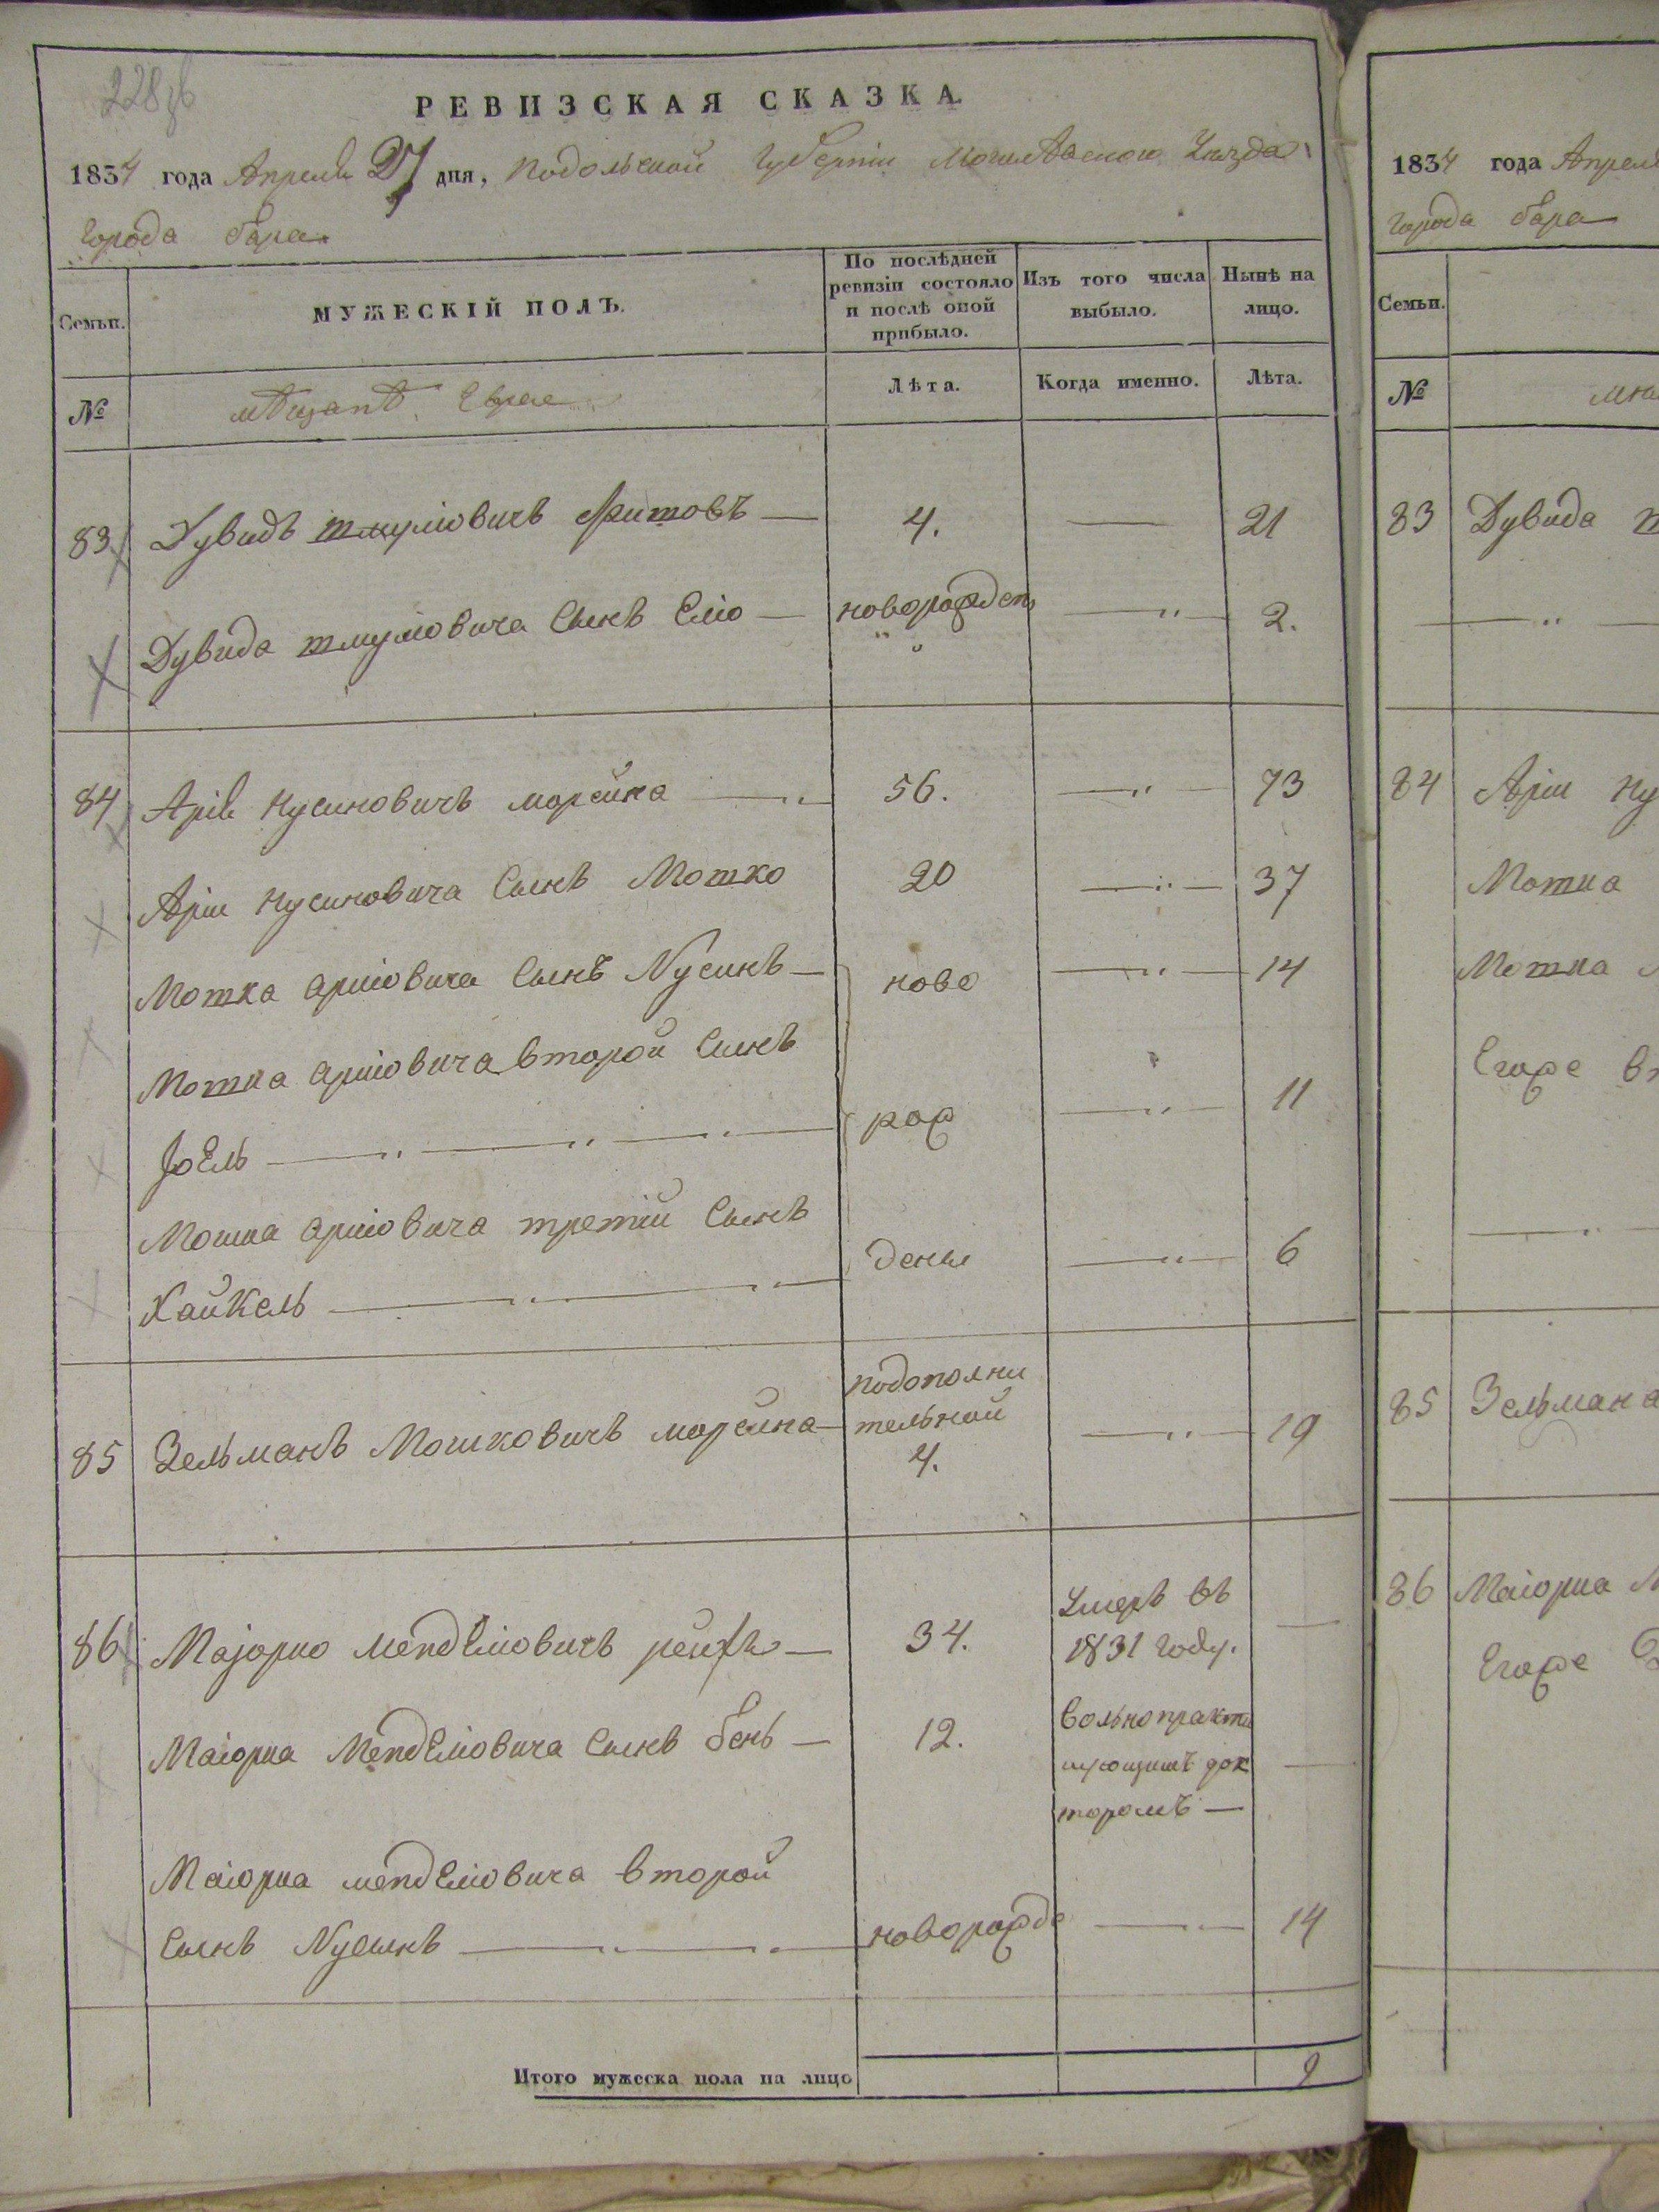 228 об
РЕВИЗСКАЯ СКАЗКА
1834 года Апреля 27 дня, Подольской Губернiи Могилевского Уезда
города бара
Семьи.
МУЖЕСКIЙ ПОЛЪ.
По послѣдней ревизiи состояло и послѣ оной прибыло.
Изъ того числа выбыло.
Нынѣ на лицо.
№
мѣщанѣ Евреи
Лѣта.
Когда именно.
Лѣта.
83 Дувидъ шмулiовичъ 4. — 21
Дувида шмулiовича Сынъ Елiо — новорожден — 2.
84 Арiя Нусиновичъ марейна 56. — 73
Арiи Нусиновича Сынъ Мотко 20 — 37
Мотка арiiовича Сынъ Нусинъ — ново — 14
Мотка арiiовича второй Сынъ
Iоель — рож — 11
Мошка арiiовича третiй Сынъ
Хайкель — дены — 6
85 Зельманъ Мошковичъ марейна — подополни
тельной
4. — 19
86 Маjорко Менделiовичъ — 34. Умеръ въ
1831 году. —
Маiорка Менделiовича Сынъ бень — 12. вольнопракти
кующимъ док
торомъ — —
Маiорка менделiовича второй
Сынъ Нусинъ — новорожде — 14
Итого мужеска пола на лицо 9
1834 года Апреля
города бара
Семьи.
№
83 Дувида
84 Арiи Ну
Мотка
Мотка
Егоже вт
85 Зельмана
86 Маiорка М
Егоже